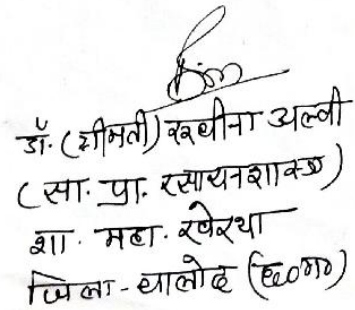 डॉ. (श्रीमती) रवीना अल्वी
(सा. प्रा. रसायनशास्त्र)
शा. महा. खेरथा
जिला - बालोद (छ०ग०)